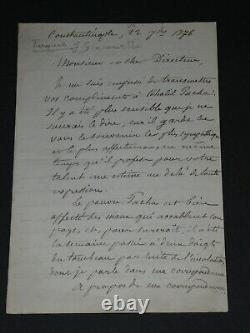 Constantinople, 22 7bre 1876
Monsieur et cher Directeur,
Je me suis empressé de transmettre
vos compliments à Khalil Pacha.
Il y a été plus sensible que je ne
saurais le dire, car il garde de
vous le souvenir le plus sympathique
et le plus affectueux, en même
temps qu'il professe pour votre
talent une estime au delà de toute
expression.
Le pauvre Pacha est bien
affecté des maux qui accablent son
pays, et, pour surcroît, il a été
la semaine passée à deux doigts
du tombeau par suite de
dont je parle dans ma correspondance
A propos de ma correspondance
ebay